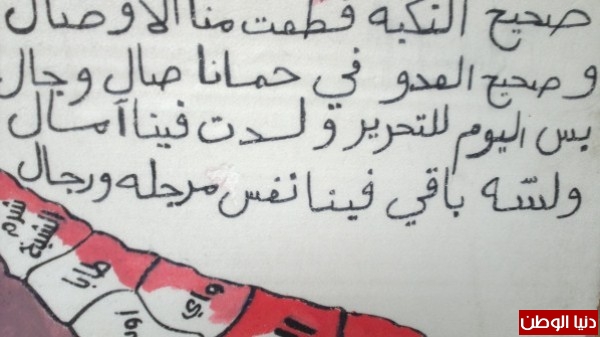 صحيح النكبه قطعت منا الاوصال
وصحيح العدو في حمانا صال وجال
بس اليوم للتحرير ولدت فينا آمال
ولسّه باقي فينا نفس مرجله ورجال
دنيا الوطن